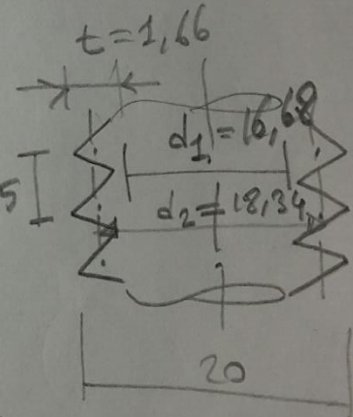 t=1,66
d₁=16,68
5
d₂=18,34
20